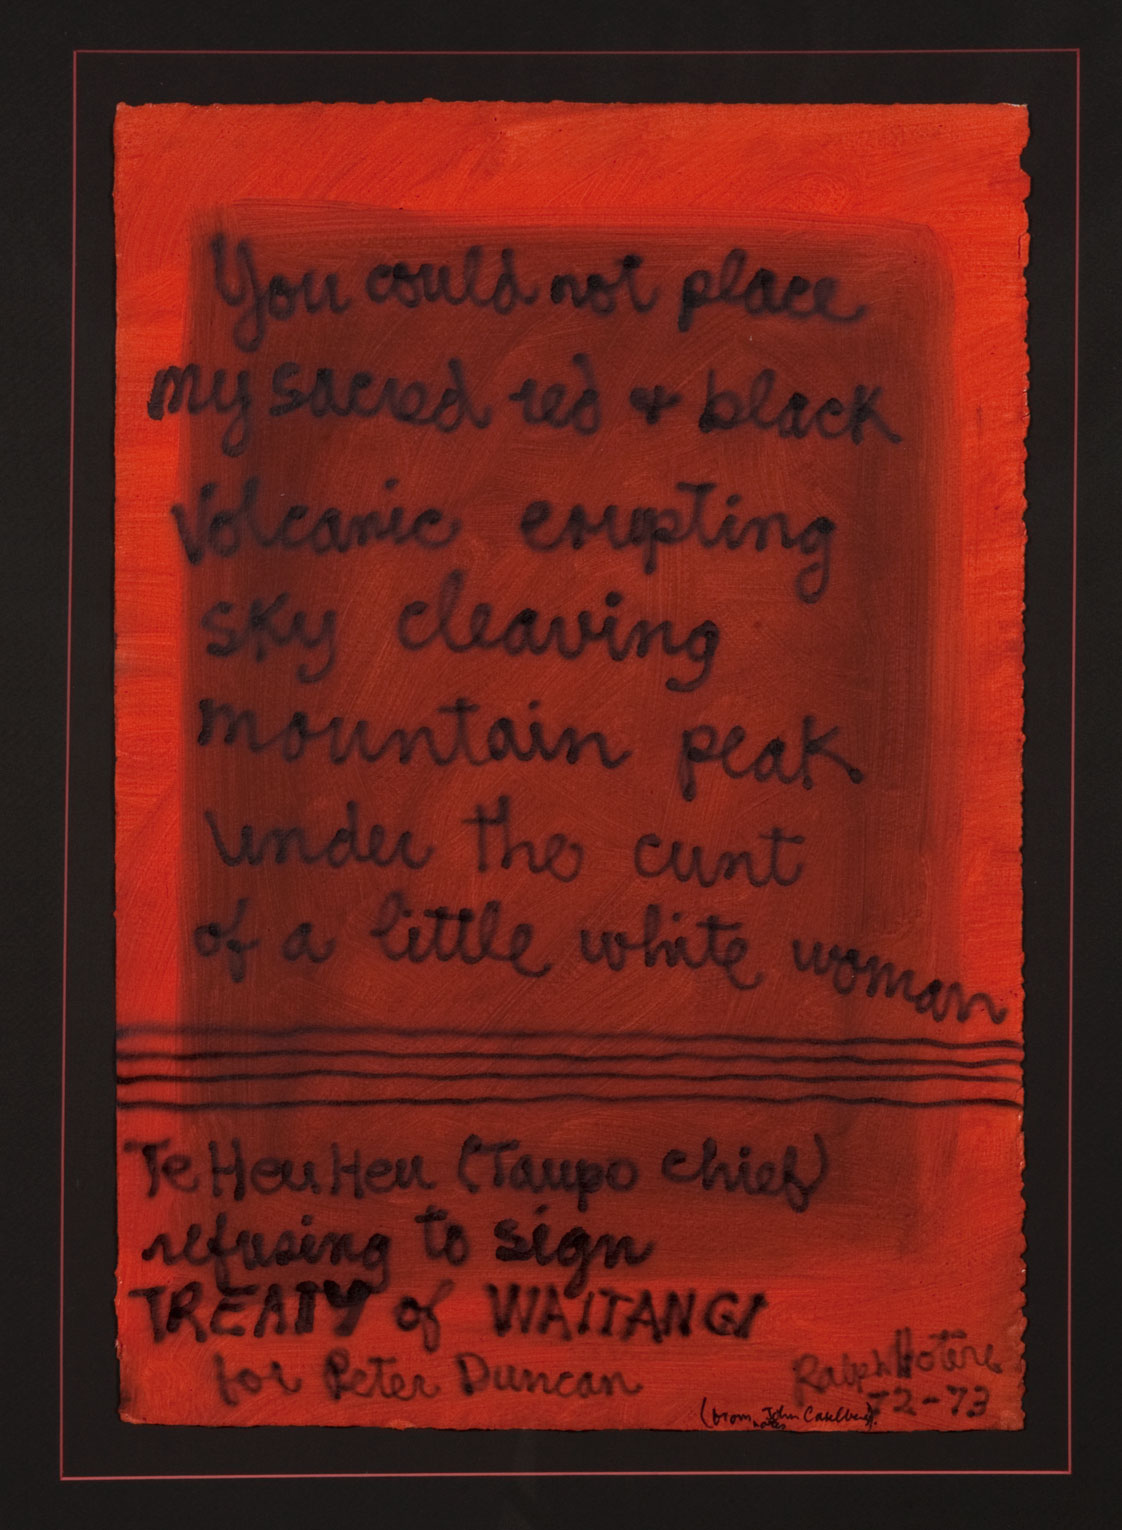 You could not place
my sacred red + black
Volcanic erupting
sky cleaving
mountain peak
under the cunt
of a little white woman
Te Heu Heu (Taupo chief)
refusing to sign
TREATY of WAITANGI
for Peter Duncan
Ralph Hotere
72-73
(from John
notes